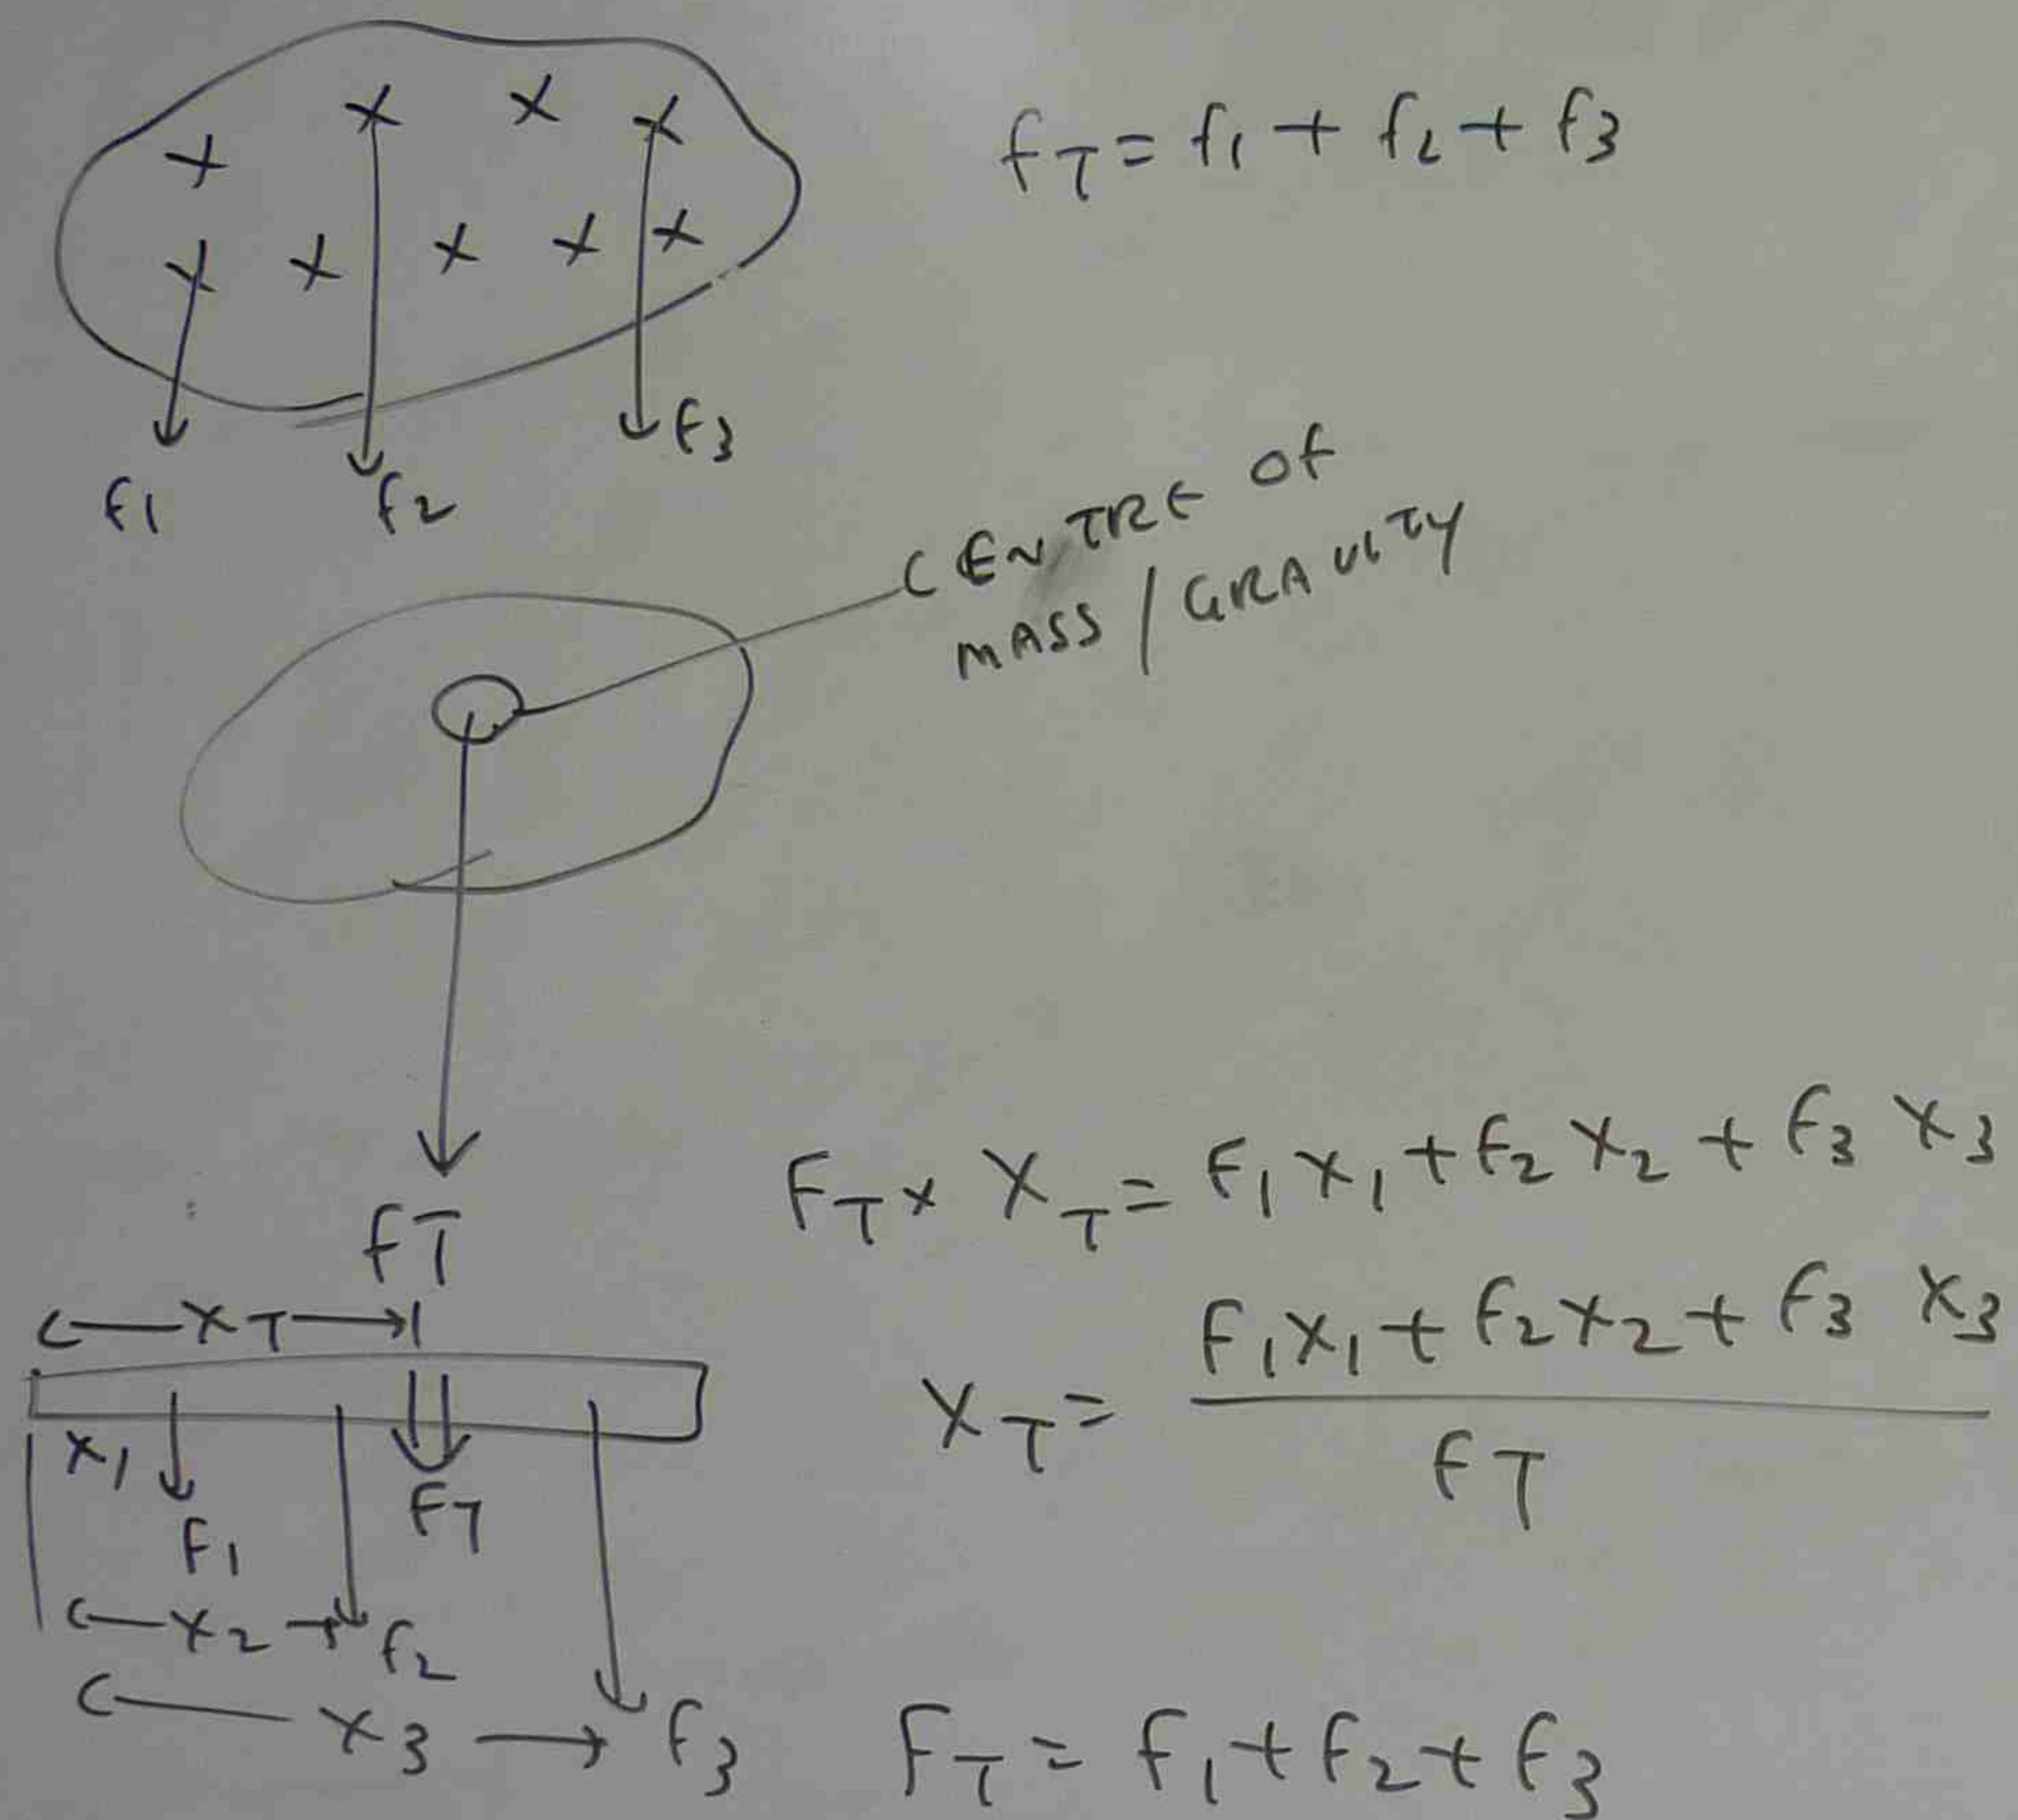 x x x x
fT = f1 + f2 + f3
x x x x x
f1 f2 f3
CENTRE OF
MASS / GRAVITY
fT
FT x XT = F1 x1 + f2 x2 + f3 x3
XT = F1x1 + f2x2 + f3 x3
fT
xT
x1
F1
FT
x2
f2
x3
f3
FT = f1 + f2 + f3